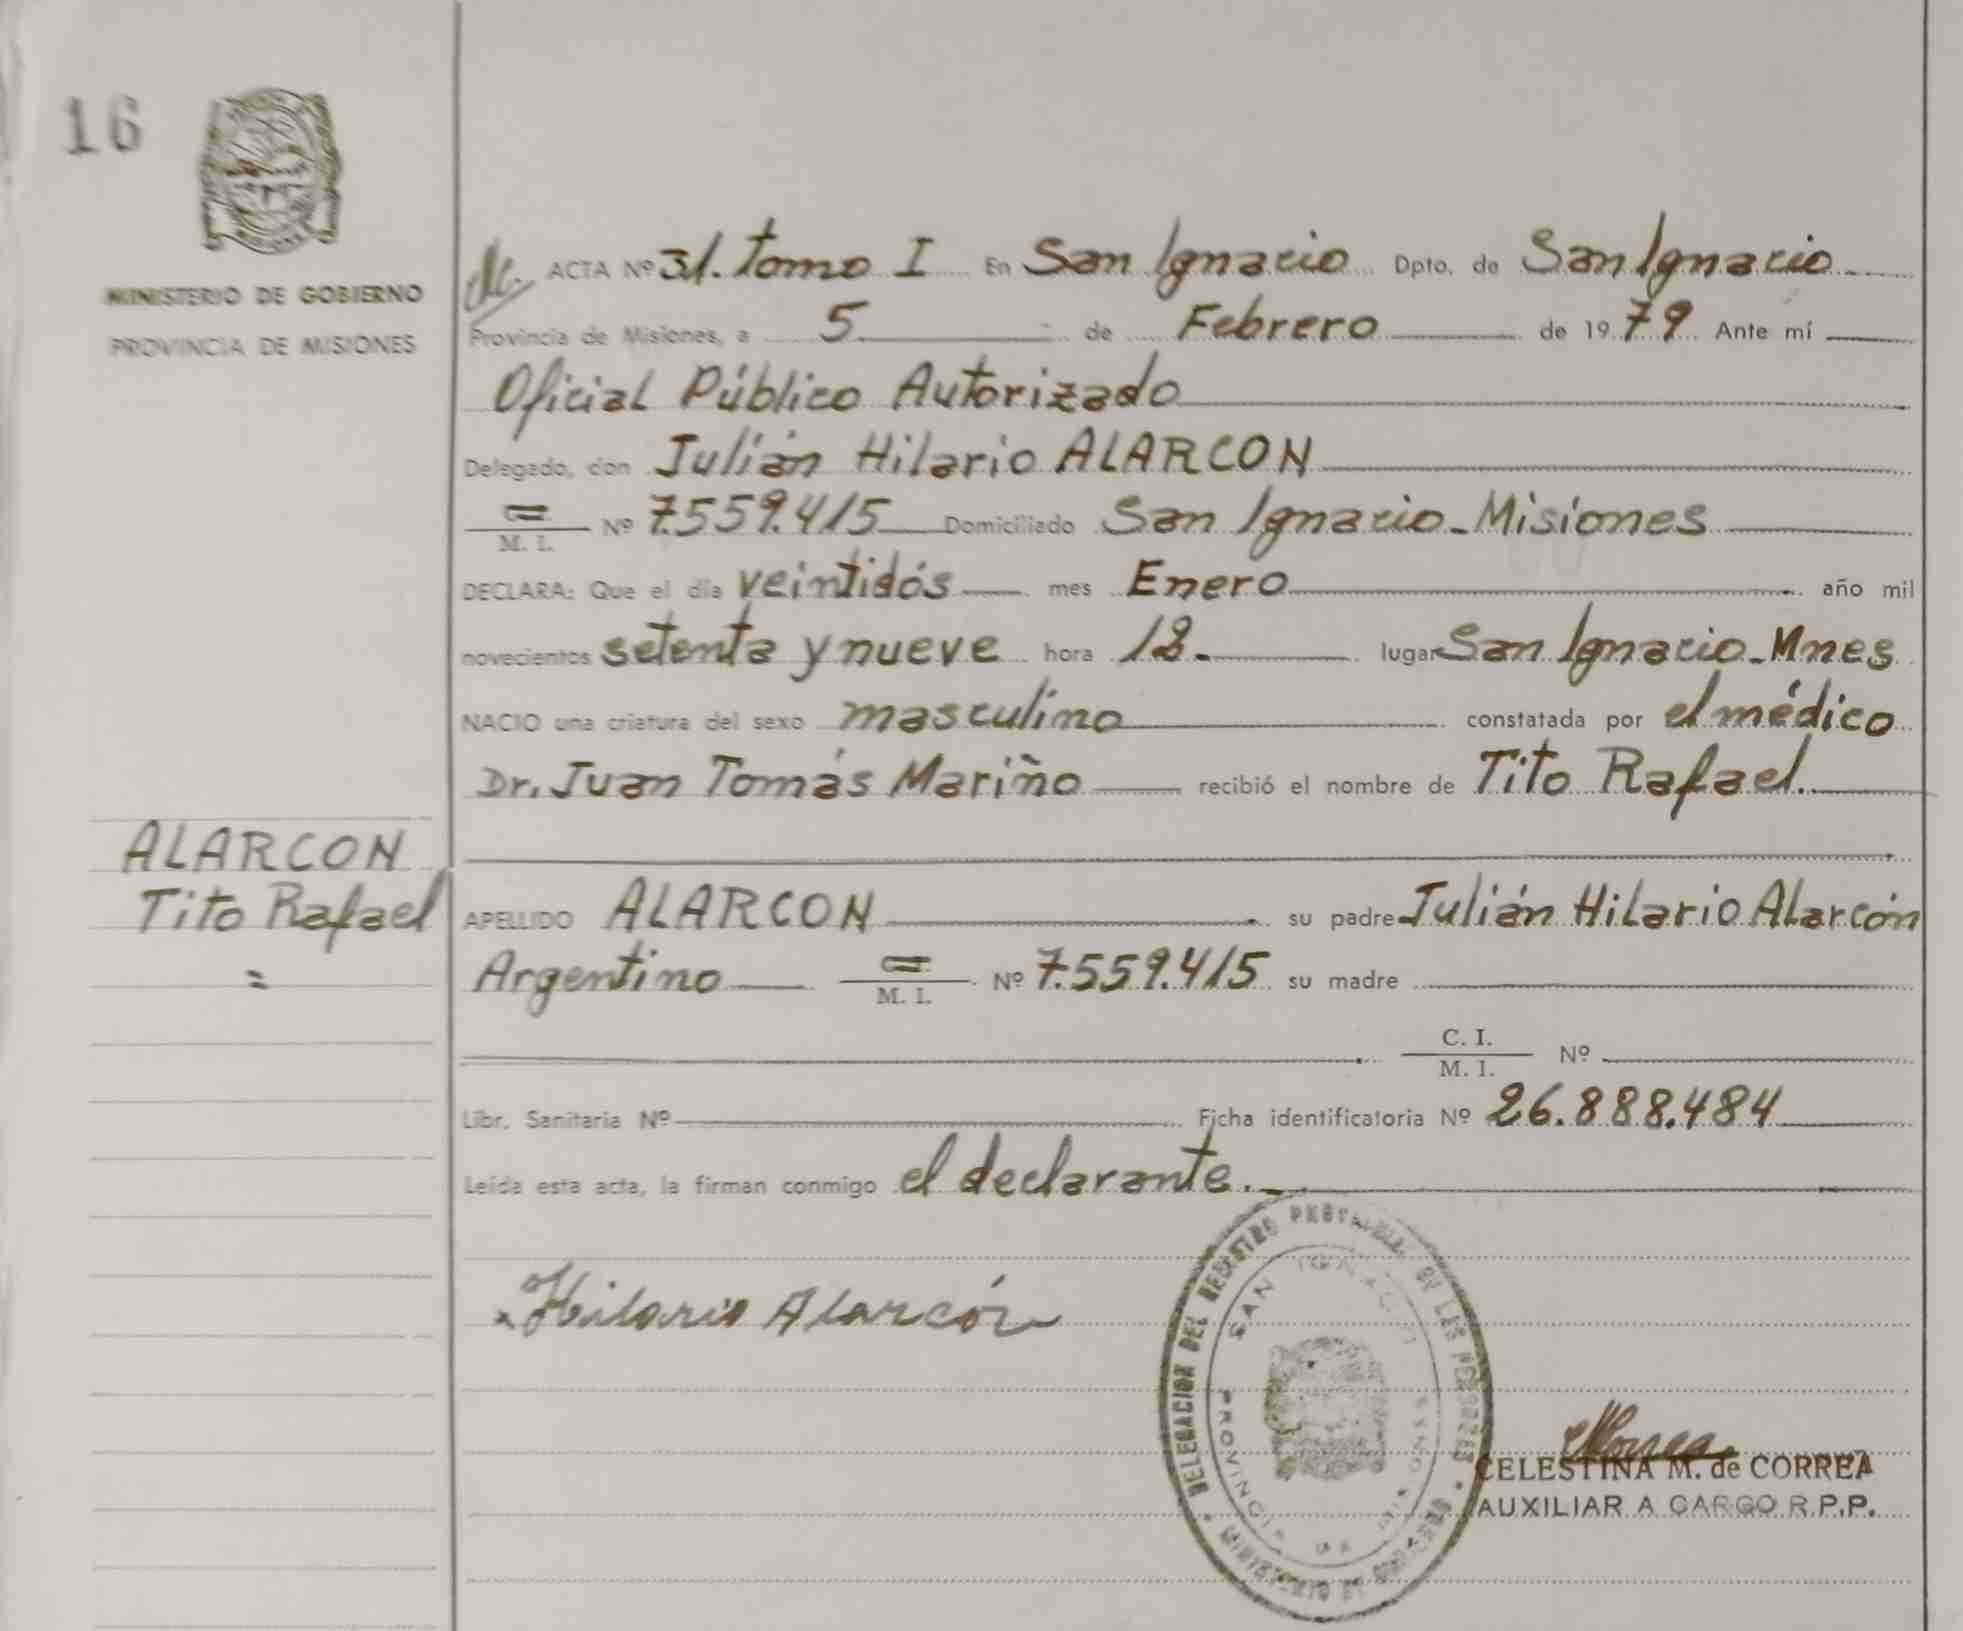 16
MINISTERIO DE GOBIERNO
PROVINCIA DE MISIONES
ACTA Nº 31. Tomo I En San Ignacio Dpto. de San Ignacio
Provincia de Misiones, a 5 de Febrero de 1979 Ante mí
Oficial Público Autorizado
Delegado, don Julián Hilario ALARCON
M. I. Nº 7.559.415 Domiciliado San Ignacio - Misiones
DECLARA: Que el día veintidós mes Enero año mil
novecientos setenta y nueve hora 12.- lugar San Ignacio - Mnes
NACIO una criatura del sexo masculino constatada por el médico
Dr. Juan Tomás Mariño recibió el nombre de Tito Rafael.
ALARCON
Tito Rafael
=
APELLIDO ALARCON su padre Julián Hilario Alarcón
Argentino M. I. Nº 7.559.415 su madre
C. I.
M. I. Nº
Libr. Sanitaria Nº Ficha identificatoria Nº 26.888.484
Leída esta acta, la firman conmigo el declarante.-
Hilario Alarcón
DELEGACION DEL REGISTRO DE LAS PERSONAS
SAN IGNACIO
PROVINCIA DE MISIONES
MINISTERIO DE GOBIERNO
CELESTINA M. de CORREA
AUXILIAR A CARGO R.P.P.